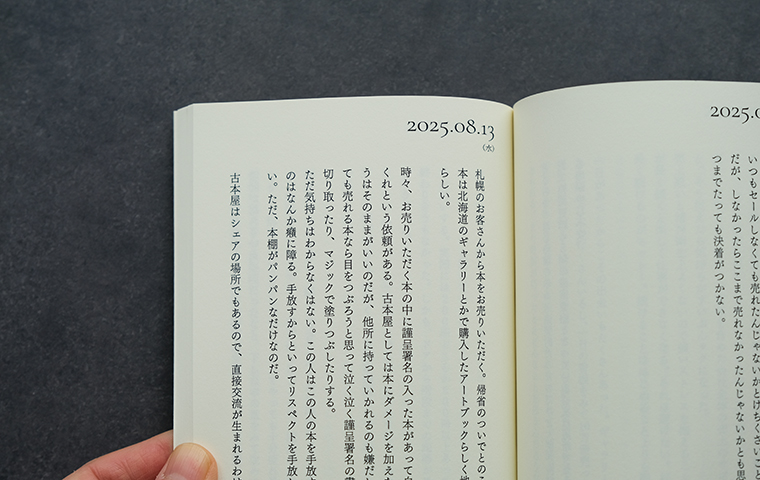 2025.0
いつもセールしなくても売れたんじゃないかとけちくさいこと
だが、しなかったらここまで売れなかったんじゃないかとも思
つまでたっても決着がつかない。
2025.08.13
(水)
札幌のお客さんから本をお売りいただく。帰省のついでとのこ
本は北海道のギャラリーとかで購入したアートブックらしく
らしい。
時々、お売りいただく本の中に謹呈署名の入った本があって
くれという依頼がある。古本屋としては本にダメージを加えた
うはそのままがいいのだが、他所に持っていかれるのも嫌だ
ても売れる本なら目をつぶろうと思って泣く泣く謹呈署名の
切り取ったり、マジックで塗りつぶしたりする。
ただ気持ちはわからなくはない。この人はこの人の本を手放す
のはなんか癪に障る。手放すからといってリスペクトを手放
い。ただ、本棚がパンパンなだけなのだ。
古本屋はシェアの場所でもあるので、直接交流が生まれるわ